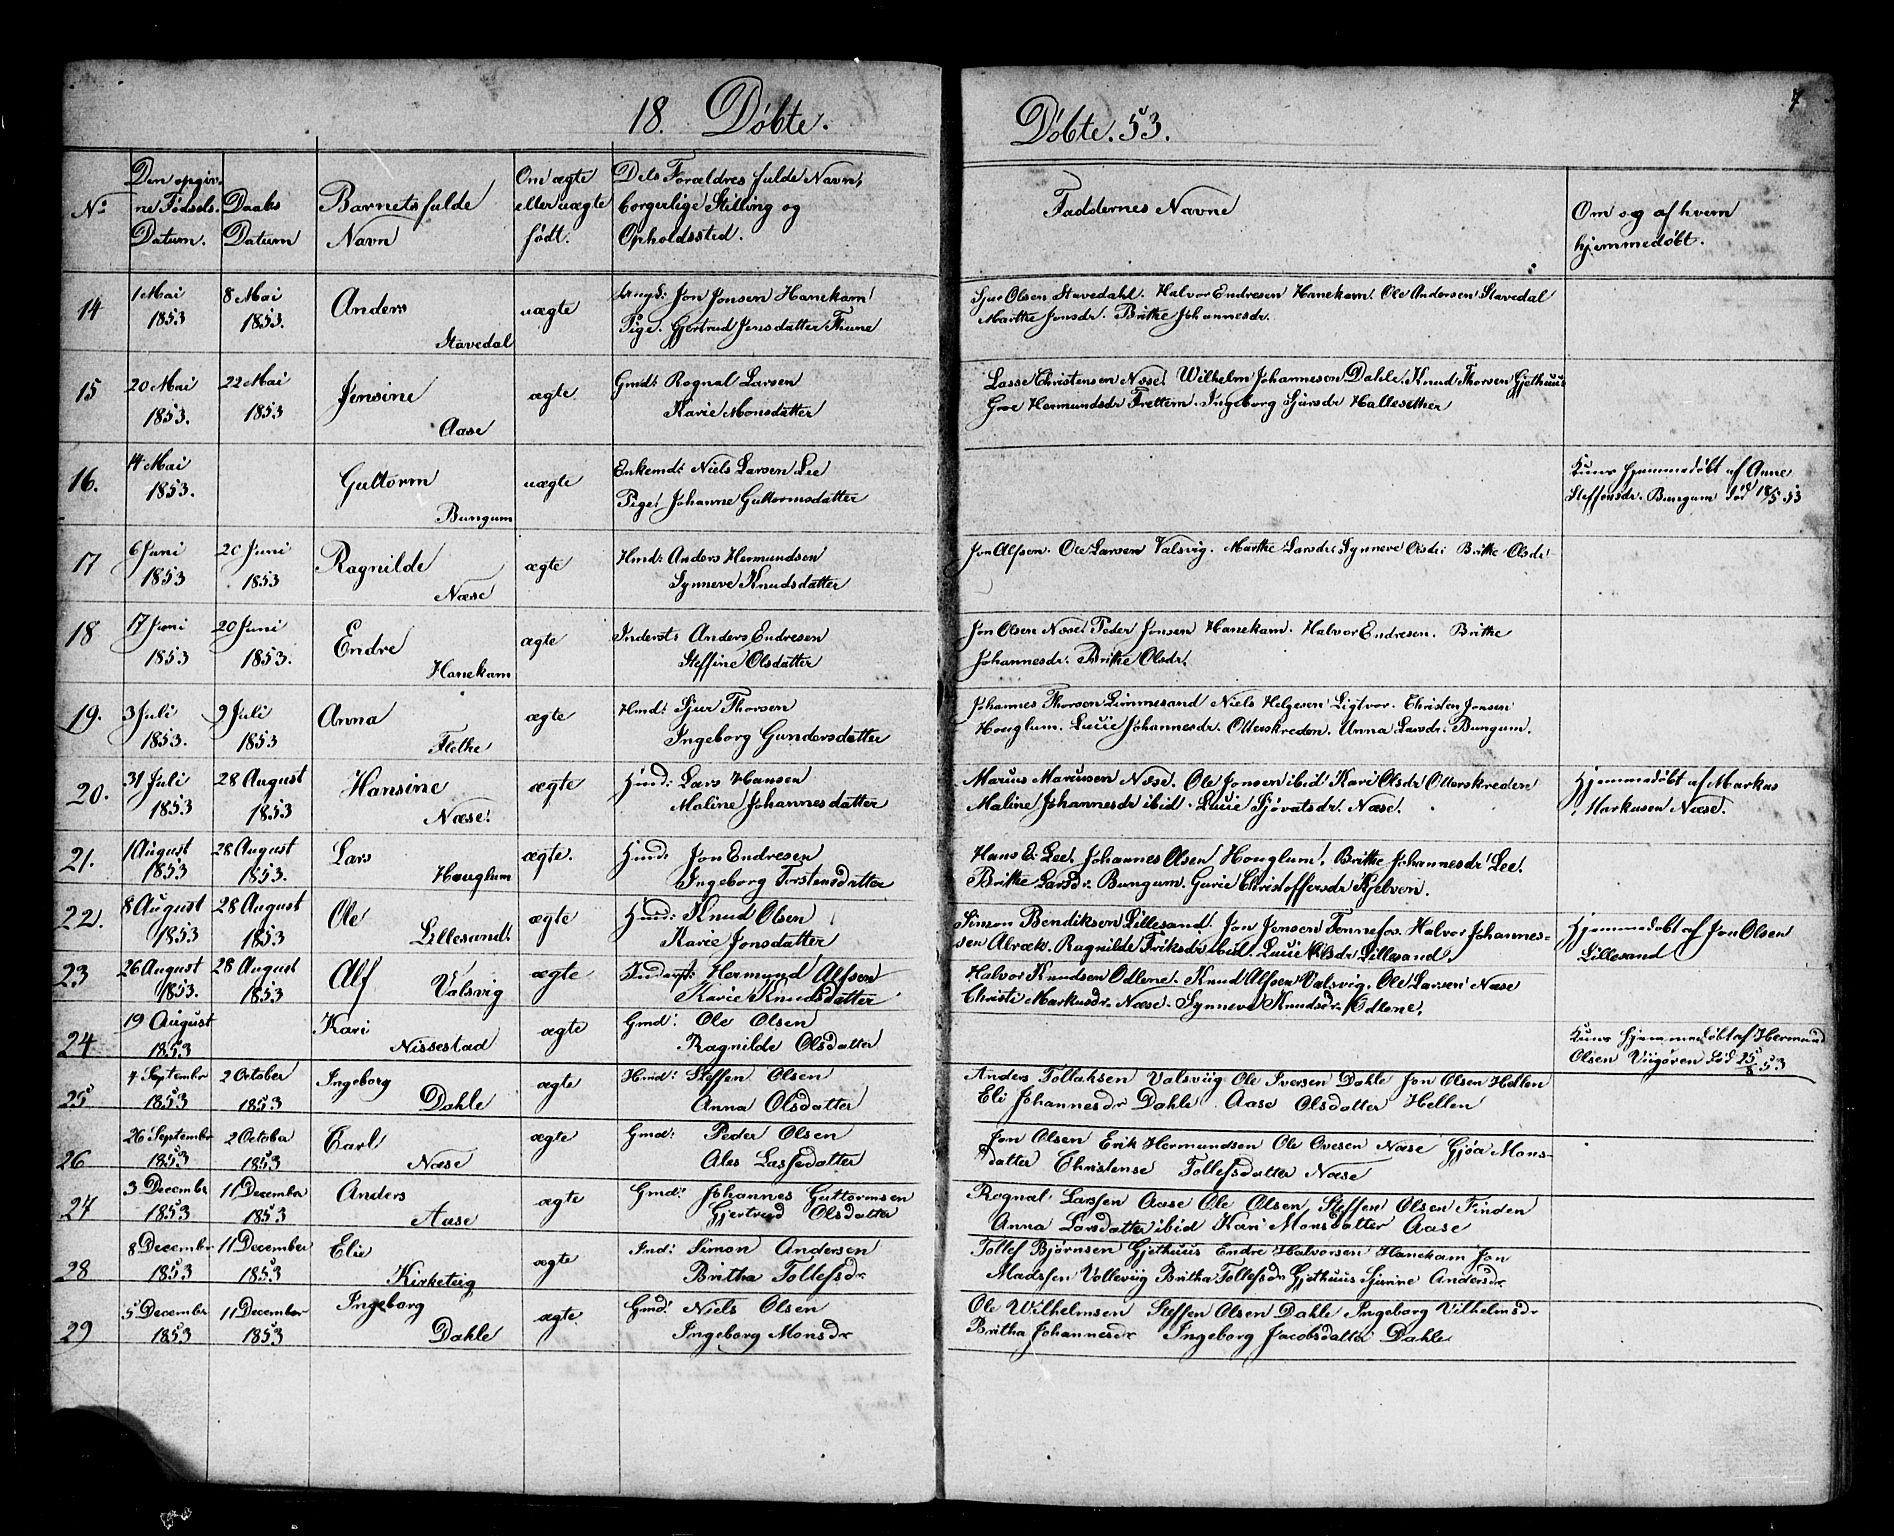 18. Døbte.
Døbte. 53.
7
No
Den opgiv-
ne Fødsels-
Datum.
Daabs
Datum
Barnets fulde
Navn
Om ægte
eller uægte
født.
Dets Forældres fulde Navn,
borgerlige Stilling og
Opholdssted.
Faddernes Navne
Om og af hvem
hjemmedøbt.
14
1 Mai
1853
8 Mai
1853.
Anders
Stavedal
uægte
Ungk: Jon Jonsen Hanekam
Pige. Gjertrud Jensdatter Thune
Sjur Olsen Stavedahl. Halvor Endresen Hanekam. Ole Andersen Stavedal
Marthe Jonsdr. Brithe Johannesdr.
15
20 Mai
1853.
22 Mai
1853
Jensine
Aase
ægte
Gmd: Rognal Larsen
Karie Monsdatter
Lasse Christensen Næse. Wilhelm Johannesen Dahle. Knud Thorsen Gjethuus
Groe Hermundsdr Frettem. Ingeborg Sjursdr Hallesether
16.
14 Mai
1853.
Guttorm
Bungum
uægte
Enkemd: Niels Larsen Lee
Pige: Johanne Guttormsdatter
Kuns hjemmedøbt af Anne
Steffensdr. Bungum død 18/5 53
17
6 Juni
1853
20 Juni
1853
Ragnilde
Næse
ægte
Hmd: Anders Hermundsen
Synneve Knudsdatter
Jon Alfsen. Ole Larsen Valsvig. Marthe Larsdr. Synneve Olsdr. Brithe Olsdr.
18
17 Juni
1853
20 Juni
1853.
Endre
Hanekam
ægte
Inderst: Anders Endresen
Steffine Olsdatter
Jon Olsen Næse. Peder Jonsen Hanekam. Halvor Endresen. Brithe
Johannesdr. Brithe Olsdr.
19.
3 Juli
1853.
9 Juli
1853
Anna
Flethe
ægte
Hmd: Sjur Thorsen
Ingeborg Gundersdatter
Johannes Thorsen Limmesand Niels Helgesen Ligtvor. Christen Jensen
Houglum. Lucie Johannesdr. Otterskreden. Anna Larsdr. Bungum.
20.
31 Juli
1853
28 August
1853
Hansine
Næse.
ægte
Hmd: Lars Hansen
Maline Johannesdatter
Marius Marcusen Næse. Ole Jonsen ibid Kari Olsdr Otterskreden
Maline Johannesdr ibid. Lucie Sjovatsdr. Næse.
Hjemmedøbt af Markus
Markusen Næse.
21.
1 August
1853
28 August
1853.
Lars
Houglum
ægte.
Hmd: Jon Endresen
Ingeborg Torstensdatter
Hans E. Lee. Johannes Olsen Houglum. Brithe Johannesdr Lee.
Brithe Larsdr. Bungum. Gurie Christoffersdr Kjelven.
22.
8 August
1853
28 August
1853
Ole
Lillesand.
ægte
Hmd: Knud Olsen
Karie Jonsdatter
Simon Bendiksen Lillesand. Jon Jensen Tennefos. Halvor Johannes-
sen Alræk. Ragnilde Eriksdr ibid. Lucie Olsdr. Lillesand.
Hjemmedøbt af Jon Olsen
Lillesand
23
26 August
1853.
28 August
1853
Alf
Valsvig
ægte
Inderst: Hermund Alfsen
Karie Knudsdatter
Halvor Knudsen Odlene. Knud Alfsen Valsvig. Ole Larsen Næse
Christi Markusdr. Næse. Synneve Knudsdr. Odlene.
24
19 August
1853
Kari
Nissestad
ægte
Gmd: Ole Olsen
Ragnilde Olsdatter
Kuns hjemmedøbt af Hermund
Olsen Viigøren død 25/8 53
25
7 Septembr
1853
2 October
1853
Ingeborg
Dahle
ægte
Hmd: Steffen Olsen
Anna Olsdatter
Anders Tollaksen Valsviig Ole Iversen Dahle Jon Olsen Hellen
Eli Johannesdr Dahle Aase Olsdatter Hellen
26
26 Septembr
1853
2 October
1853
Carl
Næse
ægte
Gmd: Peder Olsen
Ales Lassedatter
Jon Olsen Erik Hermundsen Ole Ovesen Næse Gjøa Mons-
datter Christense Tollefsdatter Næse
27
3 Decembr
1853
11 December
1853
Anders
Aase
ægte
Gmd: Johannes Guttormsen
Gjertrud Olsdatter
Rognal Larssen Aase Ole Olsen, Steffen Olsen Finden
Anna Larsdatter ibid Kari Monsdatter Aase
28
8 Decembr
1853
11 December
1853
Elie
Kirketeig
ægte
Ind: Simon Andersen
Britha Tollefsdr
Tollef Bjørnsen Gjethuus Endre Halvorsen Hanekam Jon
Madssen Volleviig Britha Tollefsdr Gjethuus Sjurine Andersdr
29
5 Decembr
1853
11 December
1853
Ingeborg
Dahle
ægte.
Gmd: Niels Olsen
Ingeborg Monsdr
Ole Wilhelmsen Steffen Olsen Dahle Ingeborg Vilhelmsdr
Britha Johannesdr Ingeborg Jacobsdatter Dahle